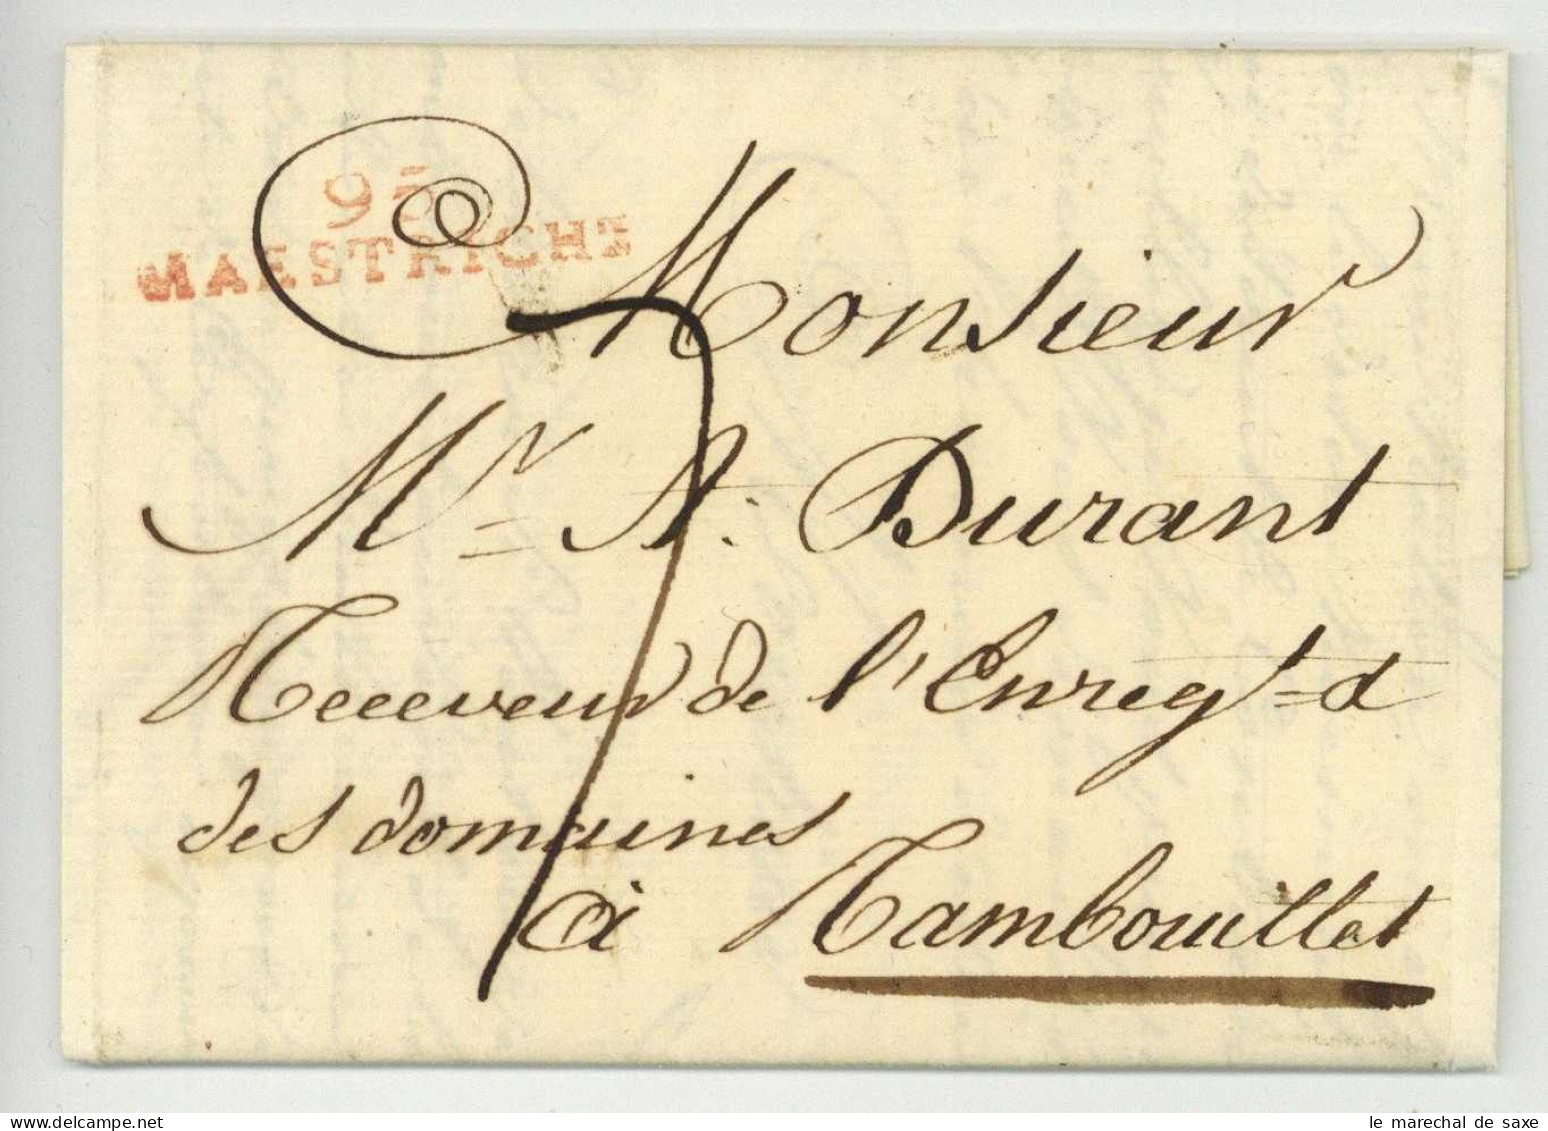 95
MAESTRICHT
7
Monsieur
Mr A: Durant
Receveur de l'Enregt & 
des domaines
à Rambouillet
le marechal de saxe